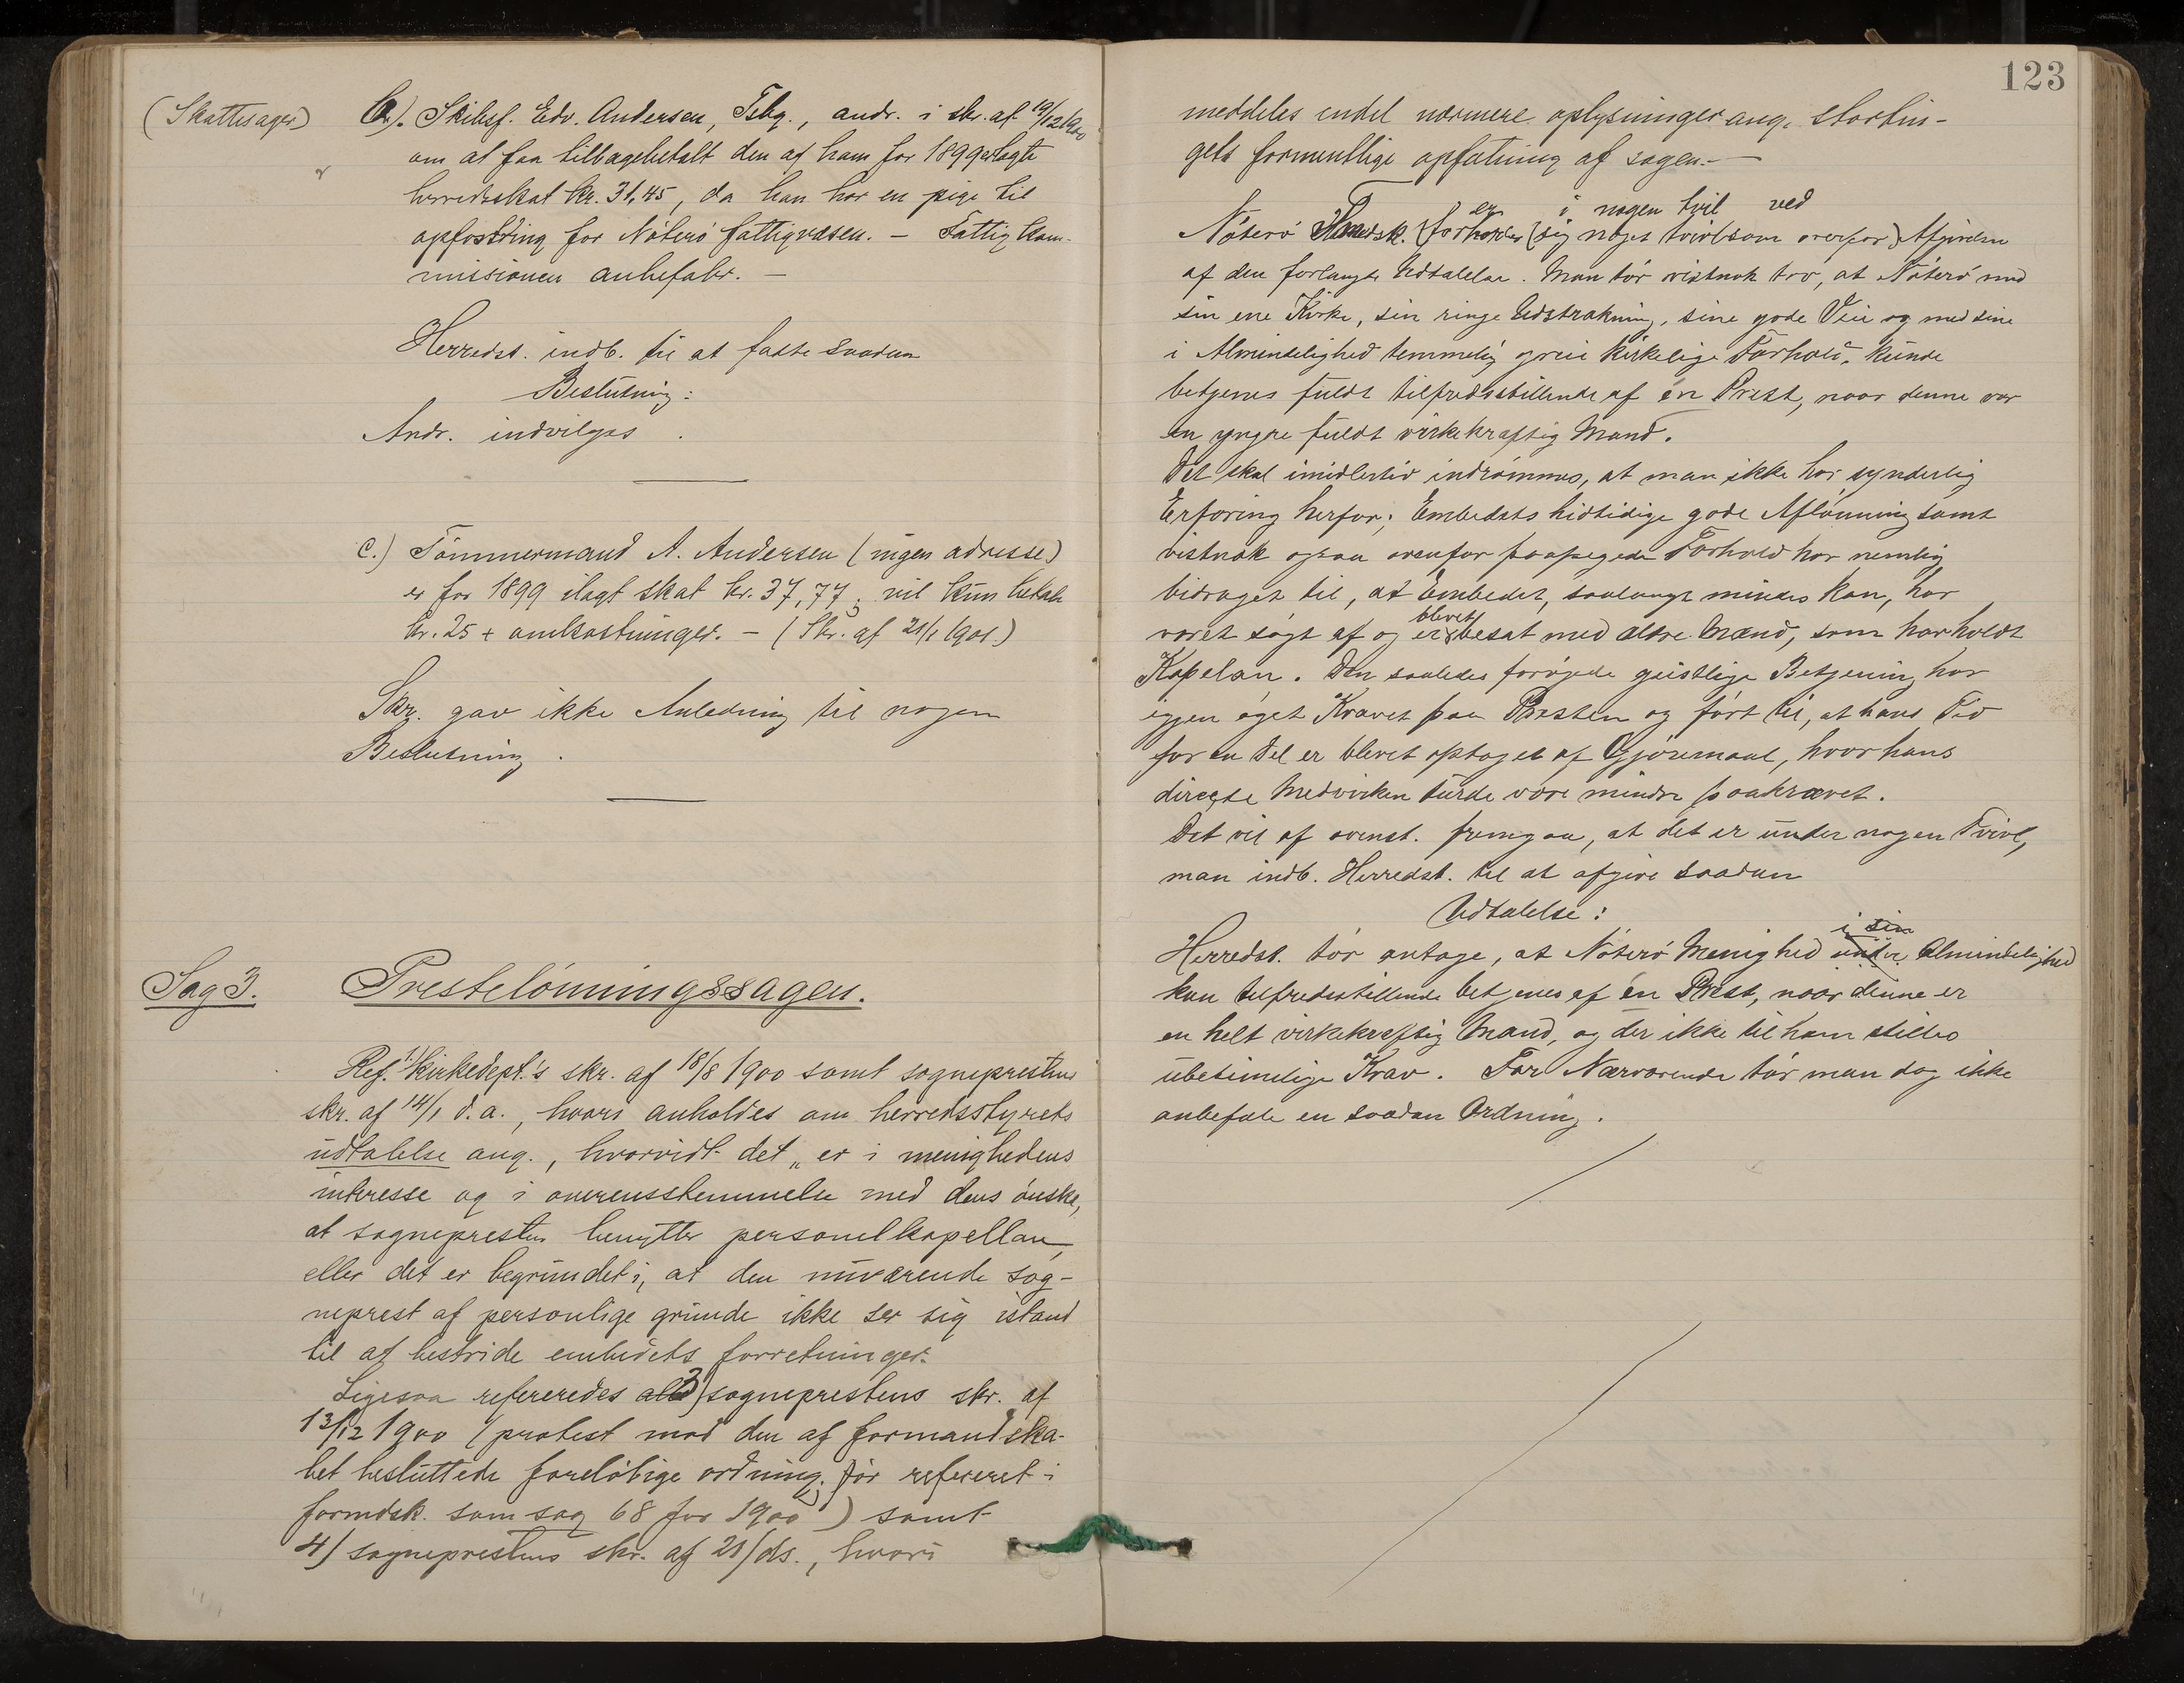 (Skattesager) b.) Skibsf. Edv. Andersen, Tsbg., andr. i skr. af 19/12 1900
om at faa tilbagebetalt den af ham for 1899 erlagte
herredsskat kr. 31,45, da han har en pige til
opfostring for Nøterø fattigvæsen. – Fattigkom-
missionen anbefaler. –
Herredst. indb. til at fatte saadan
Beslutning:
Andr. indvilges.
c.) Tømmermand A. Andersen (ingen adresse)
er for 1899 ilagt skat kr. 37,77; vil kun betale
kr. 25 + omkostninger. – (Skr. af 21/1 1901.)
Skr. gav ikke Anledning til nogen
Beslutning.
Sag 3. Prestelønningssagen.
Ref. 1) kirkedept.'s skr. af 18/8 1900 samt sogneprestens
skr. af 14/1 d. a., hvori anholdes om herredsstyrets
udtalelse ang., hvorvidt det „er i menighedens
interesse og i overensstemmelse med dens ønske,
at sognepresten benytter personelkapellan,
eller det er begrundet i, at den nuværende sog-
neprest af personlige grunde ikke ser sig istand
til at bestride embedets forretninger.
Ligesaa refereredes 3) sogneprestens skr. af
13/12 1900 (protest mod den af formandska-
bet besluttede foreløbige ordning; før refereret i
formdsk. som sag 68 for 1900) samt
4) sogneprestens skr. af 21/ ds., hvori
123
meddeles endel nærmere oplysninger ang. stortin-
gets formentlige opfatning af sagen. –
er i nogen tvil ved
Nøterø Formdsk. (forholder) (sig noget tvivlsom overfor) Afgivelsen
af den forlangte Udtalelse. Man tør vistnok tro, at Nøterø med
sin ene Kirke, sin ringe Udstrækning, sine gode Veie og med sine
i Almindelighed temmelig greie kirkelige Forhold, kunde
betjenes fuldt tilfredsstillende af én Prest, naar denne var
en yngre fuldt virkekraftig Mand.
Det skal imidlertid indrømmes, at man ikke har synderlig
Erfaring herfor; Embedets hidtidige gode Aflønning samt
vistnok ogsaa ovenfor paapegede Forhold har nemlig
bidraget til, at Embedet, saalangt mindes kan, har
blevet
været søgt af og er besat med ældre Mænd, som har holdt
Kapelan. Den saaledes forøgede geistlige Betjening har
igjen øget Kravet paa Presten og ført til, at hans Tid
for en Del er blevet optaget af Gjøremaal, hvor hans
direkte Medvirken turde være mindre paakrævet.
Det vil af ovenst. fremgaa, at det er under nogen Tvivl,
man indb. Herredst. til at afgive saadan
Udtalelse:
i sin
Herredst. tør antage, at Nøterø Menighed under Almindelighed
kan tilfredsstillende betjenes af én Prest, naar denne er
en helt virkekraftig Mand, og der ikke til ham stilles
ubetimelige Krav. For Nærværende tør man dog ikke
anbefale en saadan Ordning.